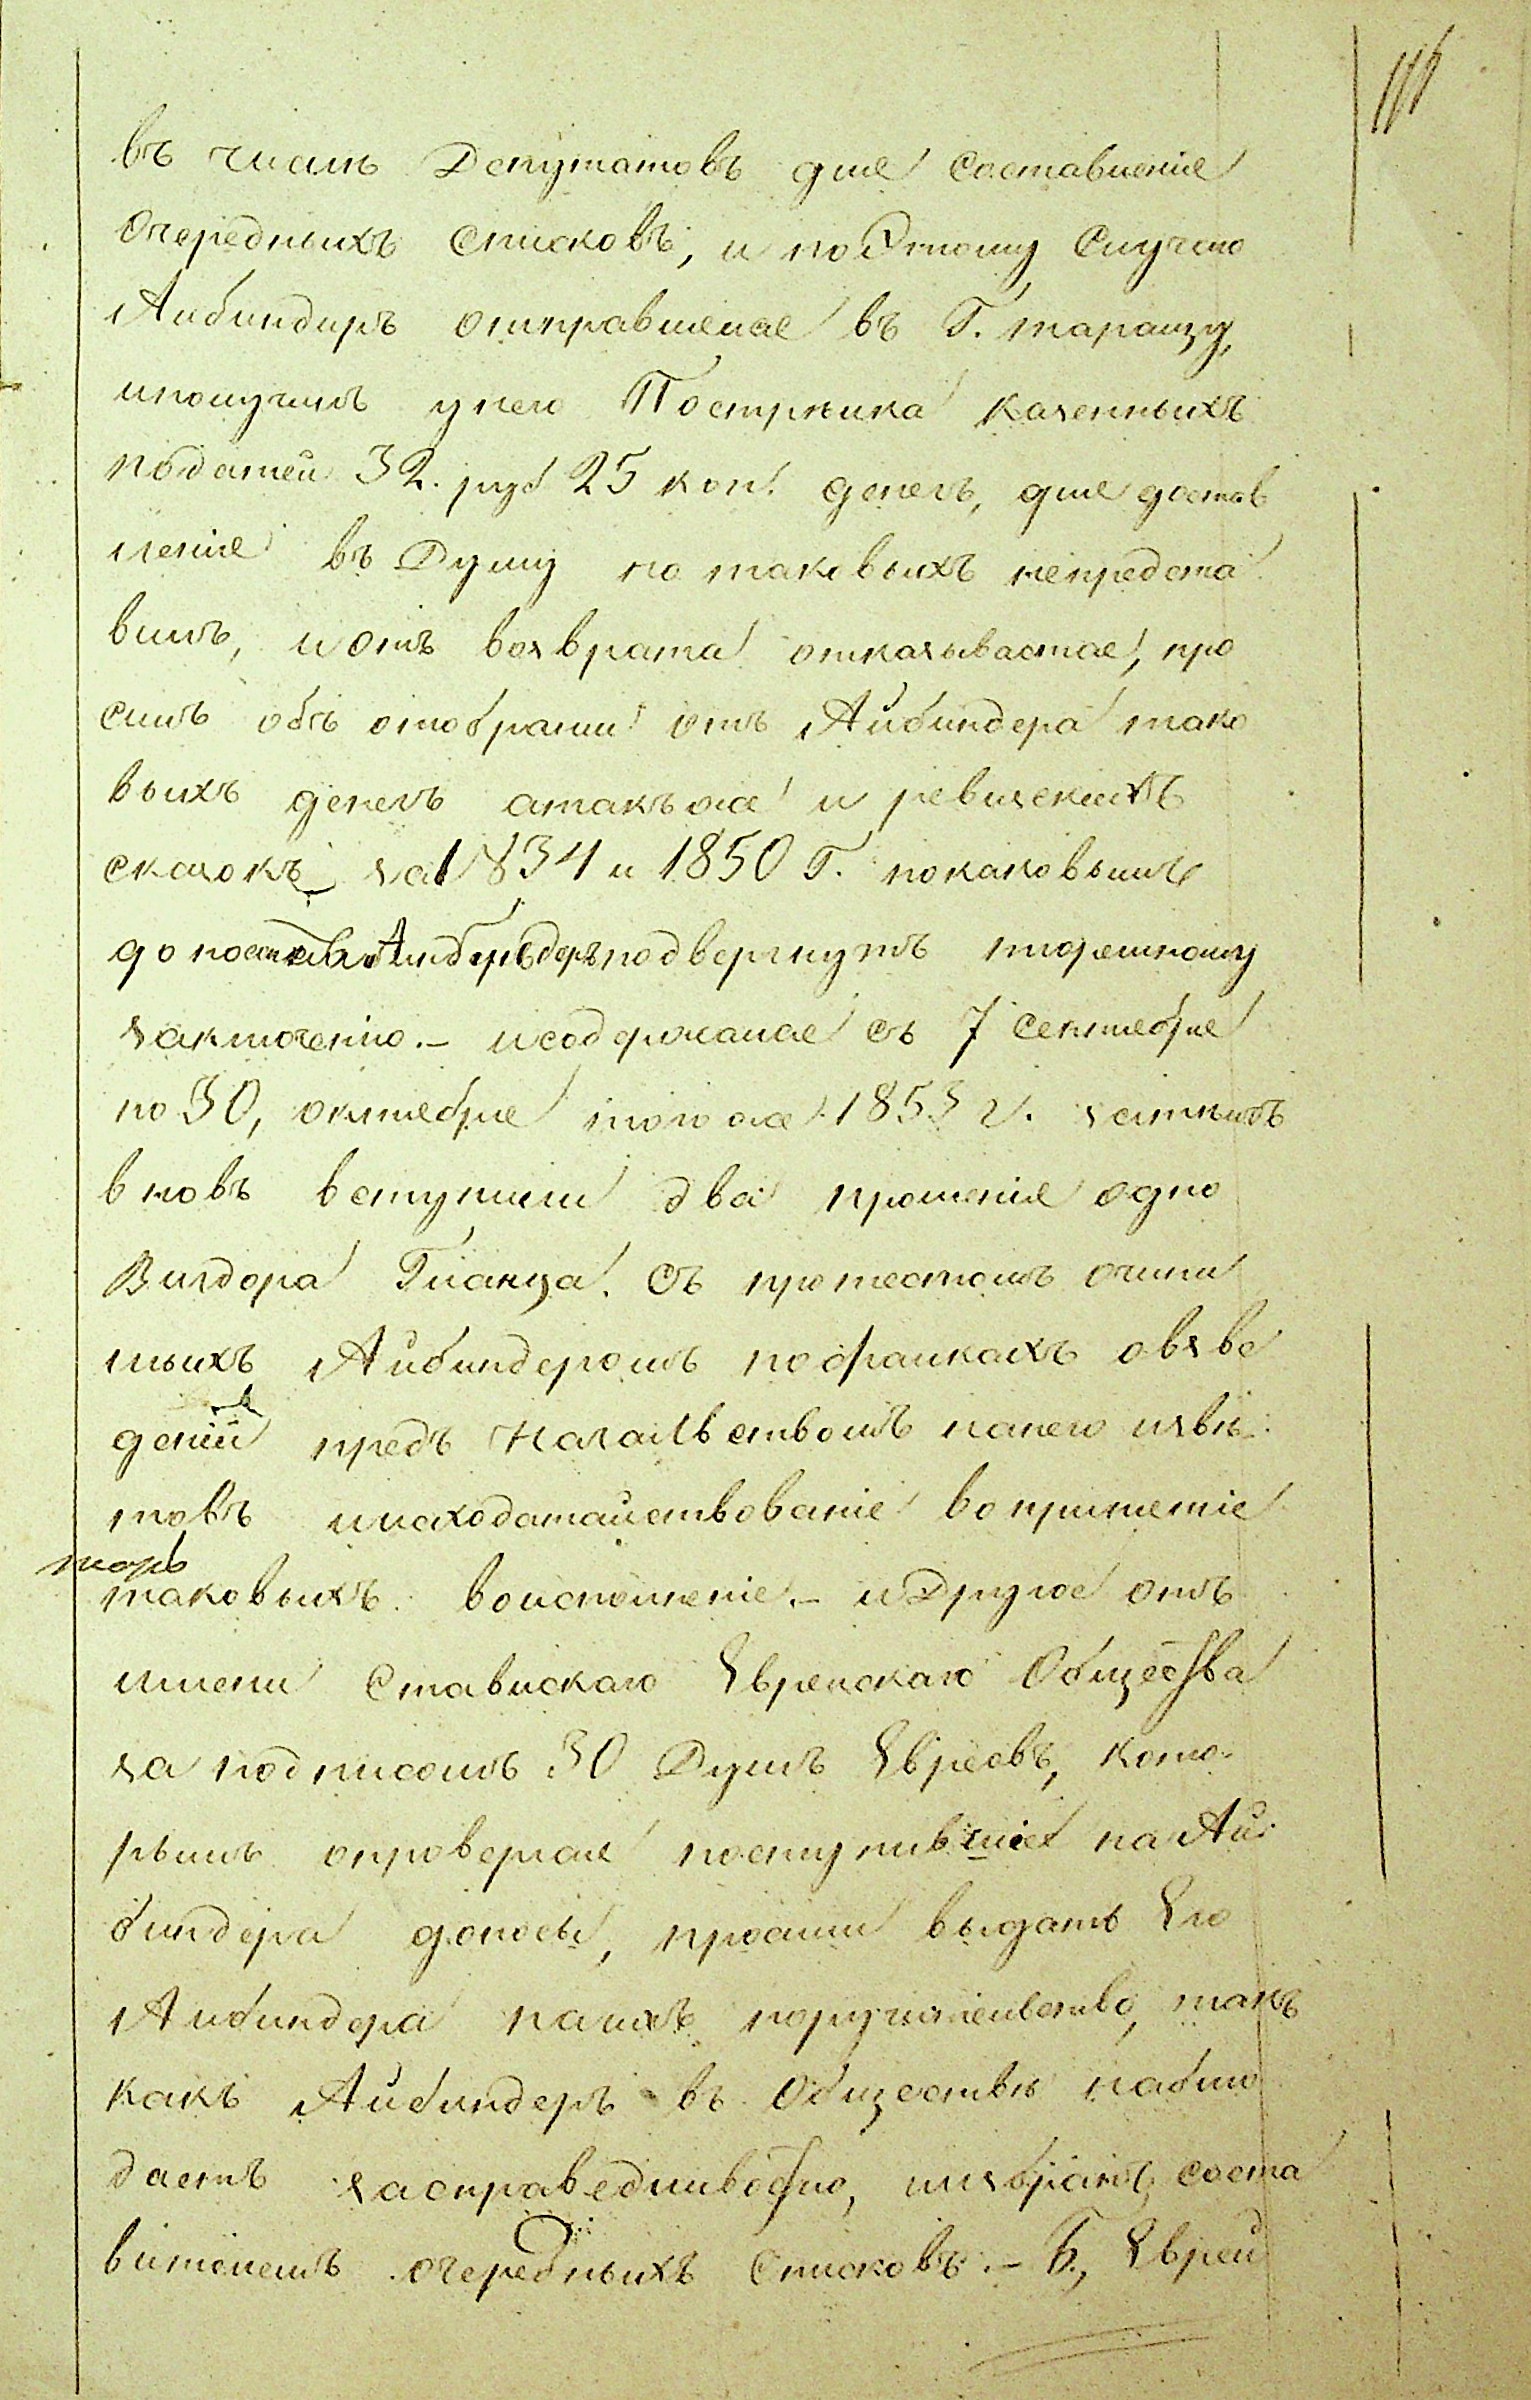 въ числѣ Депутатовъ для Составленія
Очередныхъ Списковъ, и по Этому Случаю
Айбиндиръ отправлялся въ Г. таращу,
иполучилъ унего Постръика Казенныхъ
податей 32. руб 25 коп. денегъ, для достав
ленія въ Думу но таковыхъ непредста
вилъ, и отъ возврата отказывается, про
силъ объ отобраніи отъ Айбиндера тако
выхъ денегъ атакъже и ревизскихъ
сказокъ за 1834 и 1850 Г. покаковымъ
подвергнутъ тюремному
заключенію. – исодержался съ 7 Сентября
по 30, октября того же 1853 г. затѣмъ
вновь вступили два прошенія одно
Вигдора Гланца. Съ протестомъ очини
мыхъ Айбиндеромъ пофранкахъ овзве
деніи предъ Начальствомъ нанего извѣ
товъ инаходатайствованіе вопринетіе
таковыхъ воисполненіе. – и Другое отъ
имени Ставискаго Еврейскаго Общества
за подписомъ 30 Душъ Евреевъ, кото
рымъ опровергая поступившіе на Ай
биндера доносы, просили выдать Его
Айбиндера нашѣ поручительство, такъ
какъ Айбиндеръ въ Обществѣ наблю
даетъ засправедливостію, иизбранъ соста
вителемъ очередныхъ Списковъ. – Б., Еврей